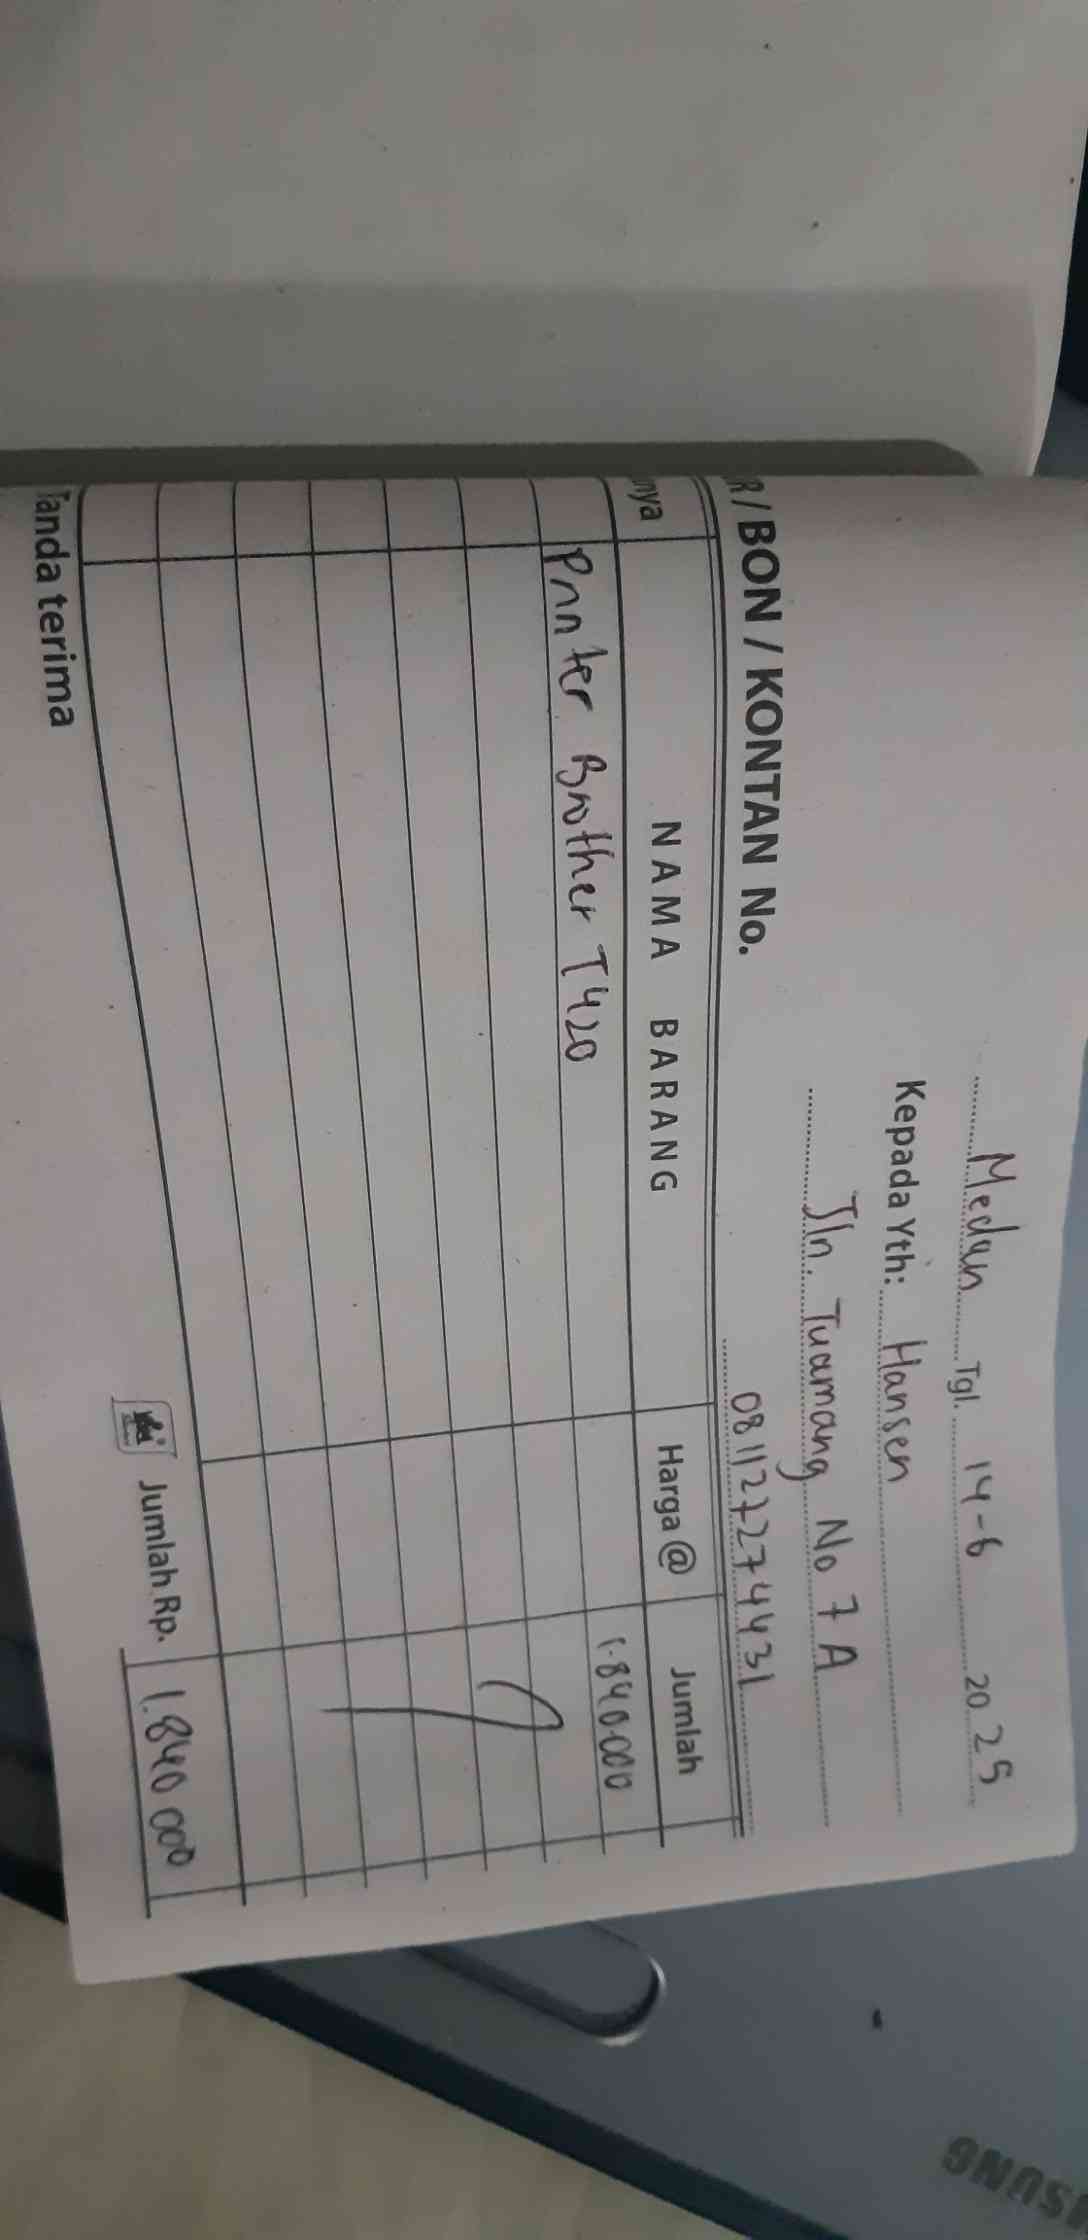 Medan Tgl. 14-6 2025
Kepada Yth: Hansen
Jln. Tuamang No 7A
081127274431
R / BON / KONTAN No.
nya NAMA BARANG Harga @ Jumlah
Printer Brother T420 1.840.000
Tanda terima
Jumlah Rp. 1.840 000
SUNG